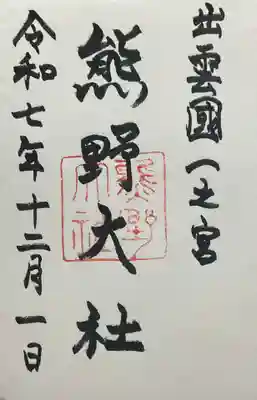 出雲國一之宮
熊野大社
令和七年十二月一日